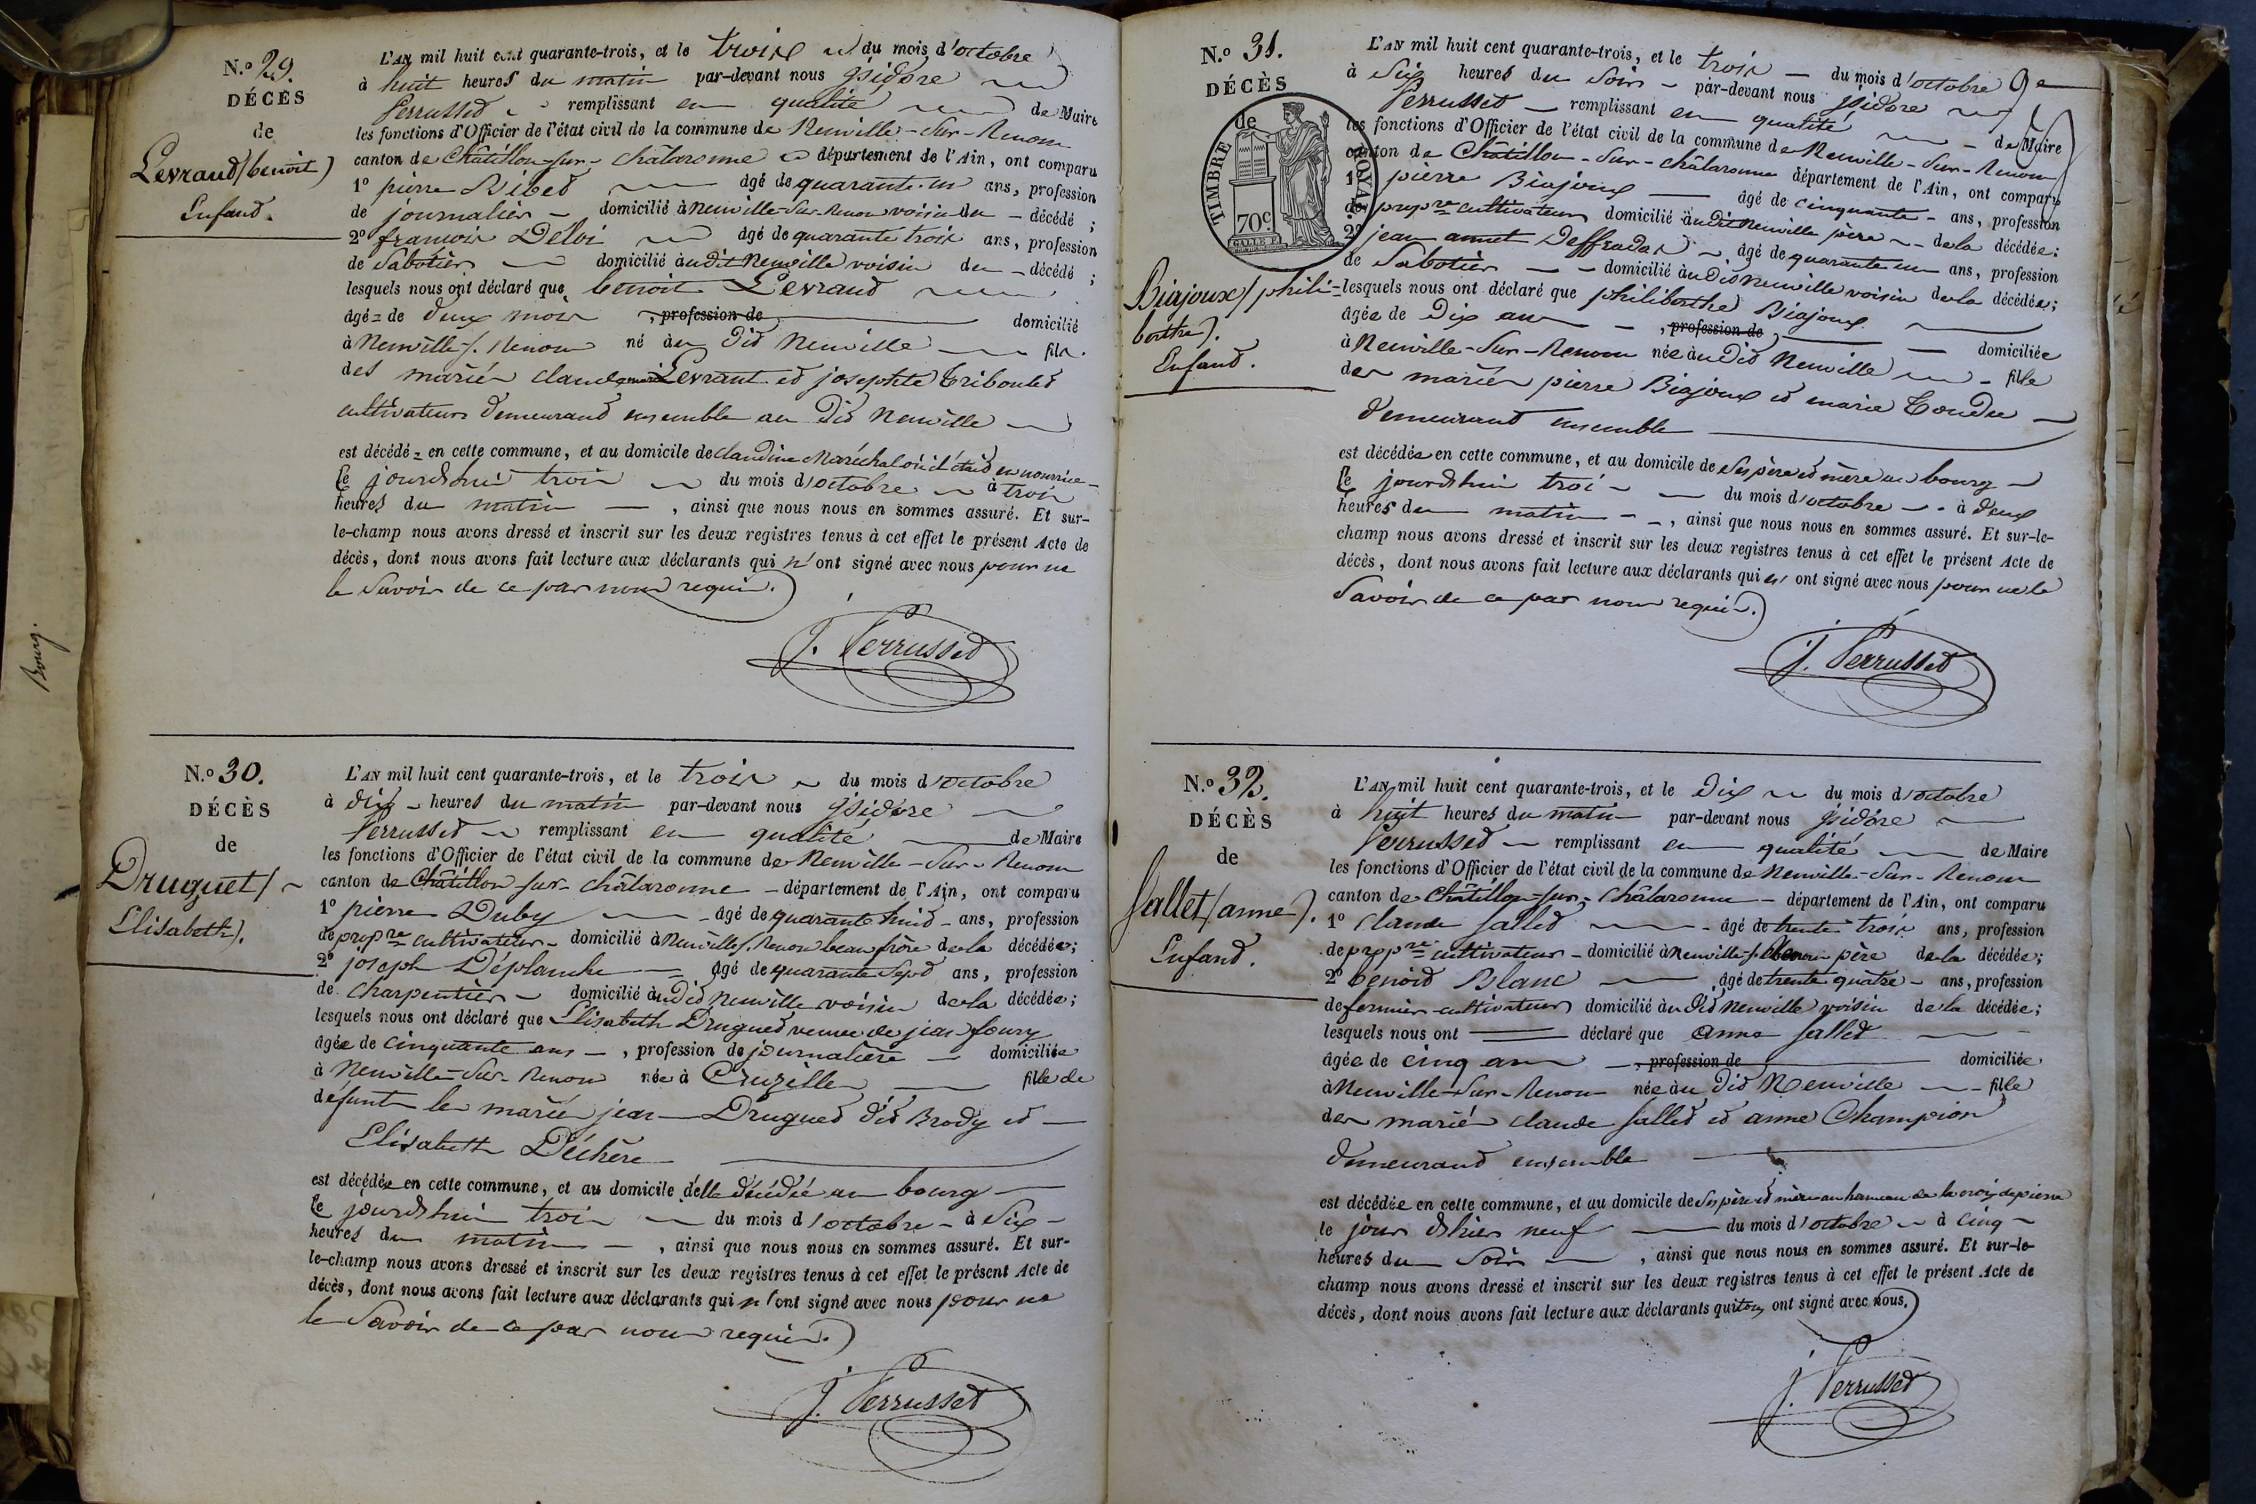 N.o 29.
DÉCÈS
de
Levraud (benoit)
Enfand.
L'AN mil huit cent quarante-trois, et le trois du mois d'octobre
à huit heures du matin par-devant nous jsidore
Perrussed remplissant en qualité de Maire
les fonctions d'Officier de l'état civil de la commune de Neuville-sur-Renom
canton de Châtillon-sur-châlaronne département de l'Ain, ont comparu
1o pierre Bibed âgé de quarante-un ans, profession
de journalier domicilié à neuville-sur-Renom voisin du décédé ;
2o francois Deloi âgé de quarante trois ans, profession
de Sabotier domicilié àudit Neuville voisin du décédé ;
lesquels nous ont déclaré que benoit Levraud
âgé de deux mois , profession de domicilié
à Neuville-s. Renom né àu did Neuville fils
des mariés claude marie Levrant ed josephte Tribouled
cultivateurs demeurand ensemble au did Neuville
est décédé en cette commune, et au domicile de claudine Maréchal où il étaid en nourrice
le jourdhui trois du mois d'octobre à trois
heures du matin , ainsi que nous nous en sommes assuré. Et sur-
le-champ nous avons dressé et inscrit sur les deux registres tenus à cet effet le présent Acte de
décès, dont nous avons fait lecture aux déclarants qui n'ont signé avec nous pour ne
le savoir de ce par nous requis.
J. Perrussed
N.o 30.
DÉCÈS
de
Druguet (
Elisabeth).
L'AN mil huit cent quarante-trois, et le trois du mois d'octobre
à dix heures du matin par-devant nous jsidore
Perrussed remplissant en qualité de Maire
les fonctions d'Officier de l'état civil de la commune de Neuville-sur-Renom
canton de Châtillon-sur-châlaronne département de l'Ain, ont comparu
1o pierre Duby âgé de quarante huid ans, profession
de propre cultivateur domicilié à Neuville s. Renom beau frère de la décédée ;
2o joseph Déplanche âgé de quarante sepd ans, profession
de charpentier domicilié àudid Neuville voisin de la décédée ;
lesquels nous ont déclaré que Elisabeth Drugued veuve de jean foury
âgée de cinquante ans , profession de journalière domiciliée
à Neuville-sur-Renom née à Cruzilles fille de
défunts les mariés jean Drugued did Brody ed
Elisabeth Déchère
est décédée en cette commune, et au domicile d'elle décédée au bourg
le jourdhui trois du mois d'octobre à six
heures du matin , ainsi que nous nous en sommes assuré. Et sur-
le-champ nous avons dressé et inscrit sur les deux registres tenus à cet effet le présent Acte de
décès, dont nous avons fait lecture aux déclarants qui n'ont signé avec nous pour ne
le savoir de ce par nous requis.
J. Perrussed
Bourg.
N.o 31.
DÉCÈS
de
TIMBRE ROYAL
70c
Biajoux (phili-
berthe).
Enfand.
L'AN mil huit cent quarante-trois, et le trois du mois d'octobre
à six heures du soir par-devant nous jsidore
Perrussed remplissant en qualité de Maire
les fonctions d'Officier de l'état civil de la commune de Neuville-sur-Renom
canton de Châtillon-sur-châlaronne département de l'Ain, ont comparu
1o pierre Biajoux âgé de cinquante ans, profession
de propre cultivateur domicilié àudit Neuville père de la décédée ;
2o jean annet Deffradas âgé de quarante-un ans, profession
de Sabotier domicilié àudid Neuville voisin de la décédée ;
lesquels nous ont déclaré que philiberthe Biajoux
âgée de dix ans , profession de domiciliée
à Neuville-sur-Renom née àudid Neuville fille
des mariés pierre Biajoux ed marie Toudu
demeurand ensemble
est décédée en cette commune, et au domicile de ses père ed mère au bourg
le jourdhui trois du mois d'octobre à deux
heures du matin , ainsi que nous nous en sommes assuré. Et sur-le-
champ nous avons dressé et inscrit sur les deux registres tenus à cet effet le présent Acte de
décès, dont nous avons fait lecture aux déclarants qui n'ont signé avec nous pour ne le
savoir de ce par nous requis.
J. Perrussed
N.o 32.
DÉCÈS
de
Sallet (anne).
Enfand.
L'AN mil huit cent quarante-trois, et le dix du mois d'octobre
à huit heures du matin par-devant nous jsidore
Perrussed remplissant en qualité de Maire
les fonctions d'Officier de l'état civil de la commune de Neuville-sur-Renom
canton de Châtillon-sur-châlaronne département de l'Ain, ont comparu
1o claude Salled âgé de trente trois ans, profession
de propre cultivateur domicilié à Neuville-s. Renom père de la décédée ;
2o benoid Blanc âgé de trente quatre ans, profession
de fermier cultivateur domicilié àu did Neuville voisin de la décédée ;
lesquels nous ont déclaré que anne Salled
âgée de cinq ans , profession de domiciliée
à Neuville-sur-Renom née àu did Neuville fille
des mariés claude Salled ed anne Champion
demeurand ensemble
est décédée en cette commune, et au domicile de ses père ed mère au hameau de la croix de pierre
le jour dhier neuf du mois d'octobre à cinq
heures du soir , ainsi que nous nous en sommes assuré. Et sur-le-
champ nous avons dressé et inscrit sur les deux registres tenus à cet effet le présent Acte de
décès, dont nous avons fait lecture aux déclarants qui ont signé avec nous.
J. Perrussed